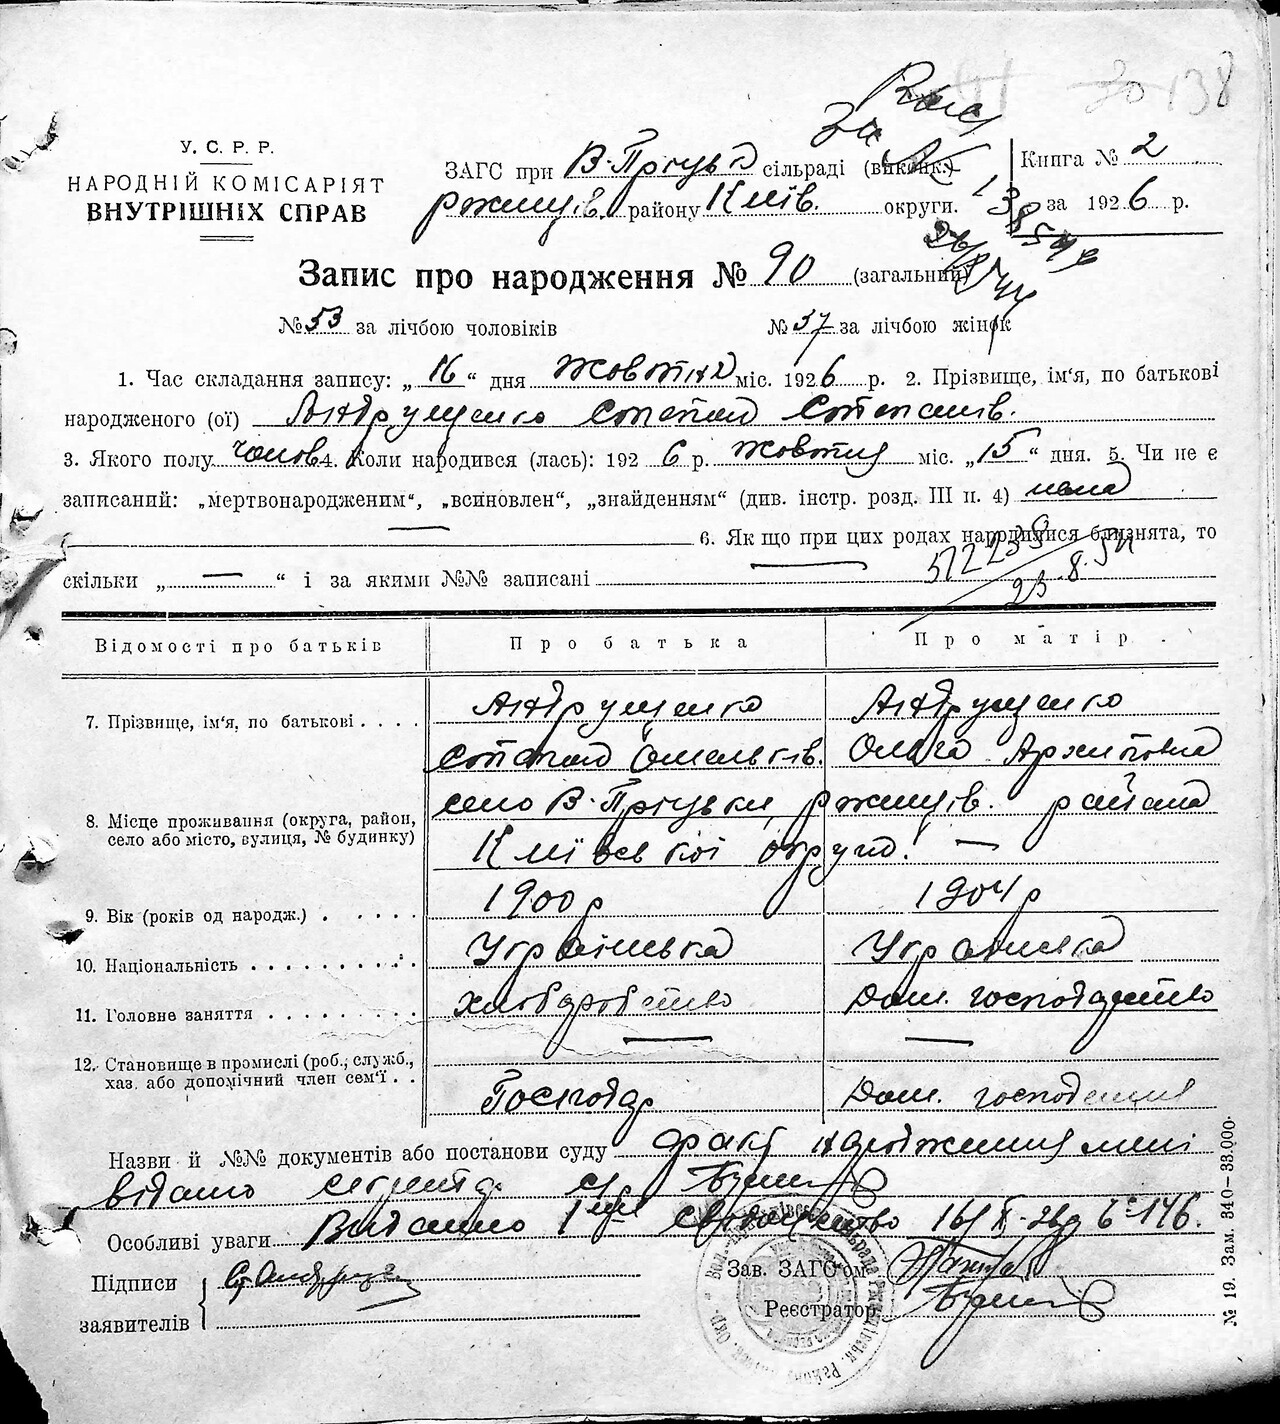 138
У. С. Р. Р.
НАРОДНІЙ КОМІСАРІЯТ
ВНУТРІШНІХ СПРАВ
ЗАГС при В-Пріцьк сільраді (виконк.)
ржищів. району Київ. округи.
Книга № 2
за 1926 р.
Запис про народження № 90 (загальний)
№ 53 за лічбою чоловіків № 37 за лічбою жінок
1. Час складання запису: „16“ дня жовтня міс. 1926 р. 2. Прізвище, ім'я, по батькові
народженого (ої) Андрущенко Степан Степанів.
3. Якого полу чолов 4. Коли народився (лась): 1926 р. жовтня міс. „15“ дня. 5. Чи не є
записаний: „мертвонародженим“, „всиновлен“, „знайденням“ (див. інстр. розд. III п. 4) нема
— 6. Як що при цих родах народилися близнята, то
скільки „—“ і за якими №№ записані —
23.8.54
Відомості про батьків Про батька Про матір
7. Прізвище, ім'я, по батькові Андрущенко Андрущенко
Степан Омельків. Ольга Архипівна
8. Місце проживання (округа, район, село або місто, вулиця, № будинку) село В-Пріцьки, ржищів. района
Київської округи. —
9. Вік (років од народж.) 1900 р 1904 р
10. Національність Українська Українська
11. Головне заняття хліборобство Дом. господарство
12. Становище в промислі (роб., служб., — —
хаз. або допомічний член сем'ї Господар Дом. господиня
Назви й №№ документів або постанови суду факт народження мені
відомо секретар с/р
Особливі уваги Видано 1 ше свідоцтво 16/X-26р № 146.
Підписи
заявителів
Зав. ЗАГС'ом
Реєстратор
№ 19. Зам. 340—33.000.